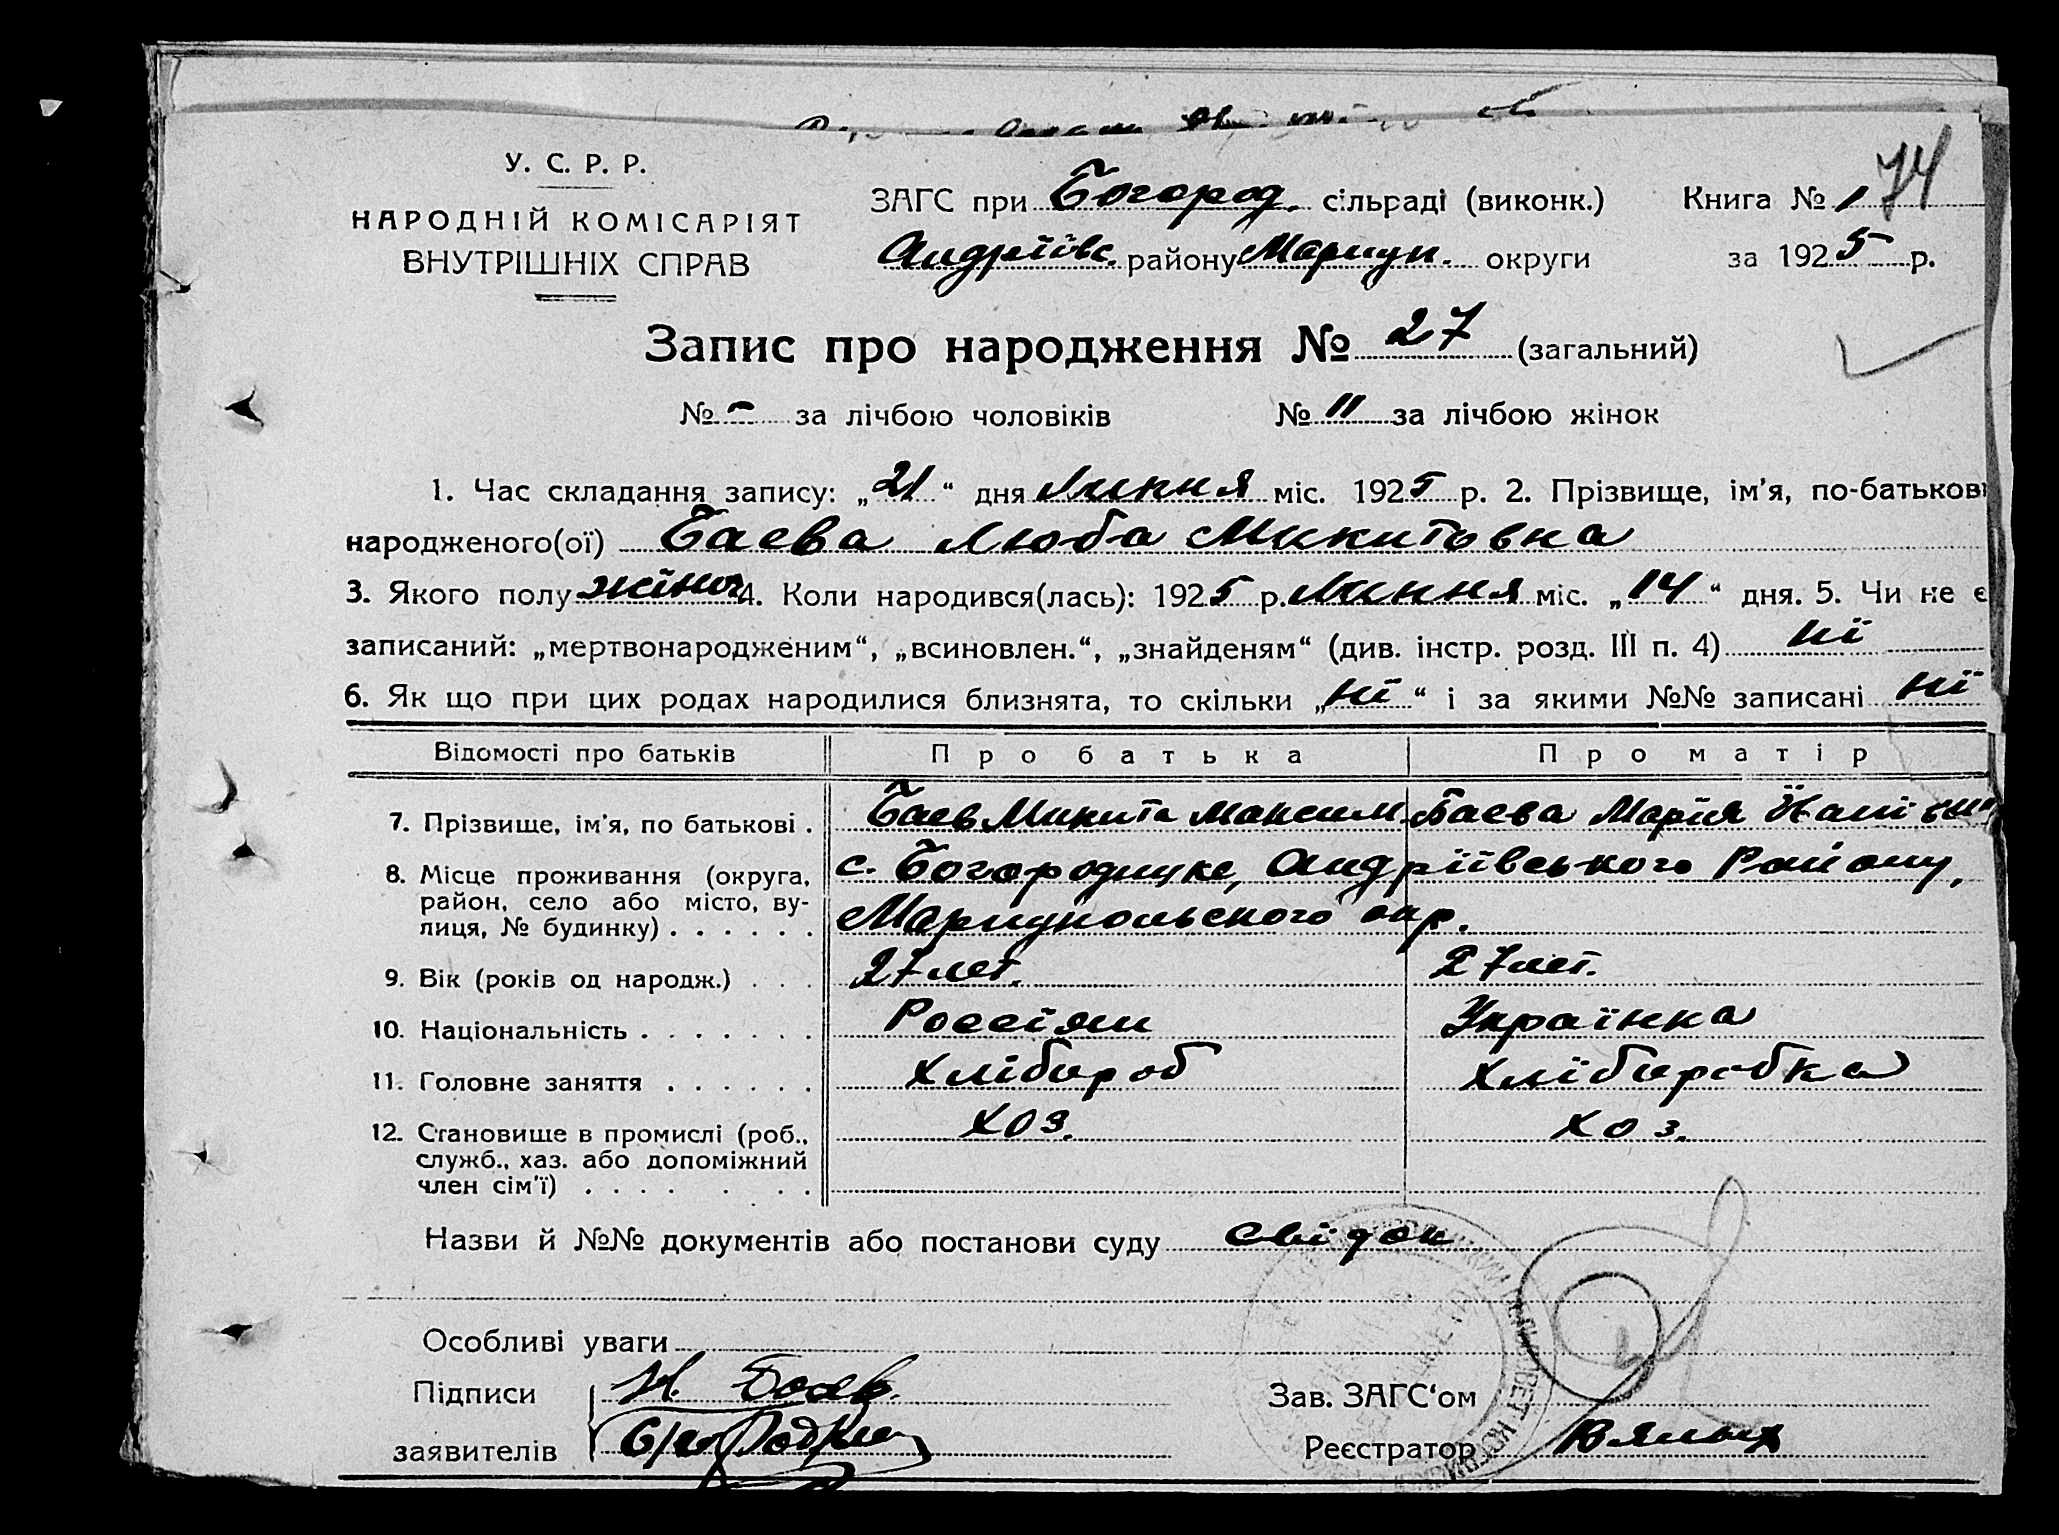 74
У. С. Р. Р.
НАРОДНІЙ КОМІСАРІЯТ
ВНУТРІШНІХ СПРАВ
ЗАГС при Богород. сільраді (виконк.) Книга № 1
Андріївс. району Маріуп. округи за 1925 р.
Запис про народження № 27 (загальний)
№ – за лічбою чоловіків № 11 за лічбою жінок
1. Час складання запису: „21“ дня Липня міс. 1925 р. 2. Прізвище, ім'я, по-батькові
народженого(ої) Баева Люба Микитовна
3. Якого полу жіноч 4. Коли народився(лась): 1925 р. Липня міс. „14“ дня. 5. Чи не є
записаний: „мертвонародженим“, „всиновлен.“, „знайденям“ (див. інстр. розд. III п. 4) ні
6. Як що при цих родах народилися близнята, то скільки „ні“ і за якими №№ записані ні
Відомості про батьків Про батька Про матір
7. Прізвище, ім'я, по батькові . Баев Микита Максим. Баева Марія
8. Місце проживання (округа, с. Богородицке, Андріївського Району,
район, село або місто, ву- Мариупольского окр.
лиця, № будинку) . . . . . .
9. Вік (років од народж.) . . . 27 лет. 27 лет.
10. Національність . . . . . . . Россіян Українка
11. Головне заняття . . . . . . Хлібороб Хліборобка
12. Становище в промислі (роб., хоз. хоз.
служб., хаз. або допоміжний
член сім'ї) . . . . . . . .
Назви й №№ документів або постанови суду свідок
Особливі уваги
Підписи Н. Баев. Зав. ЗАГС‘ом
заявителів Реєстратор